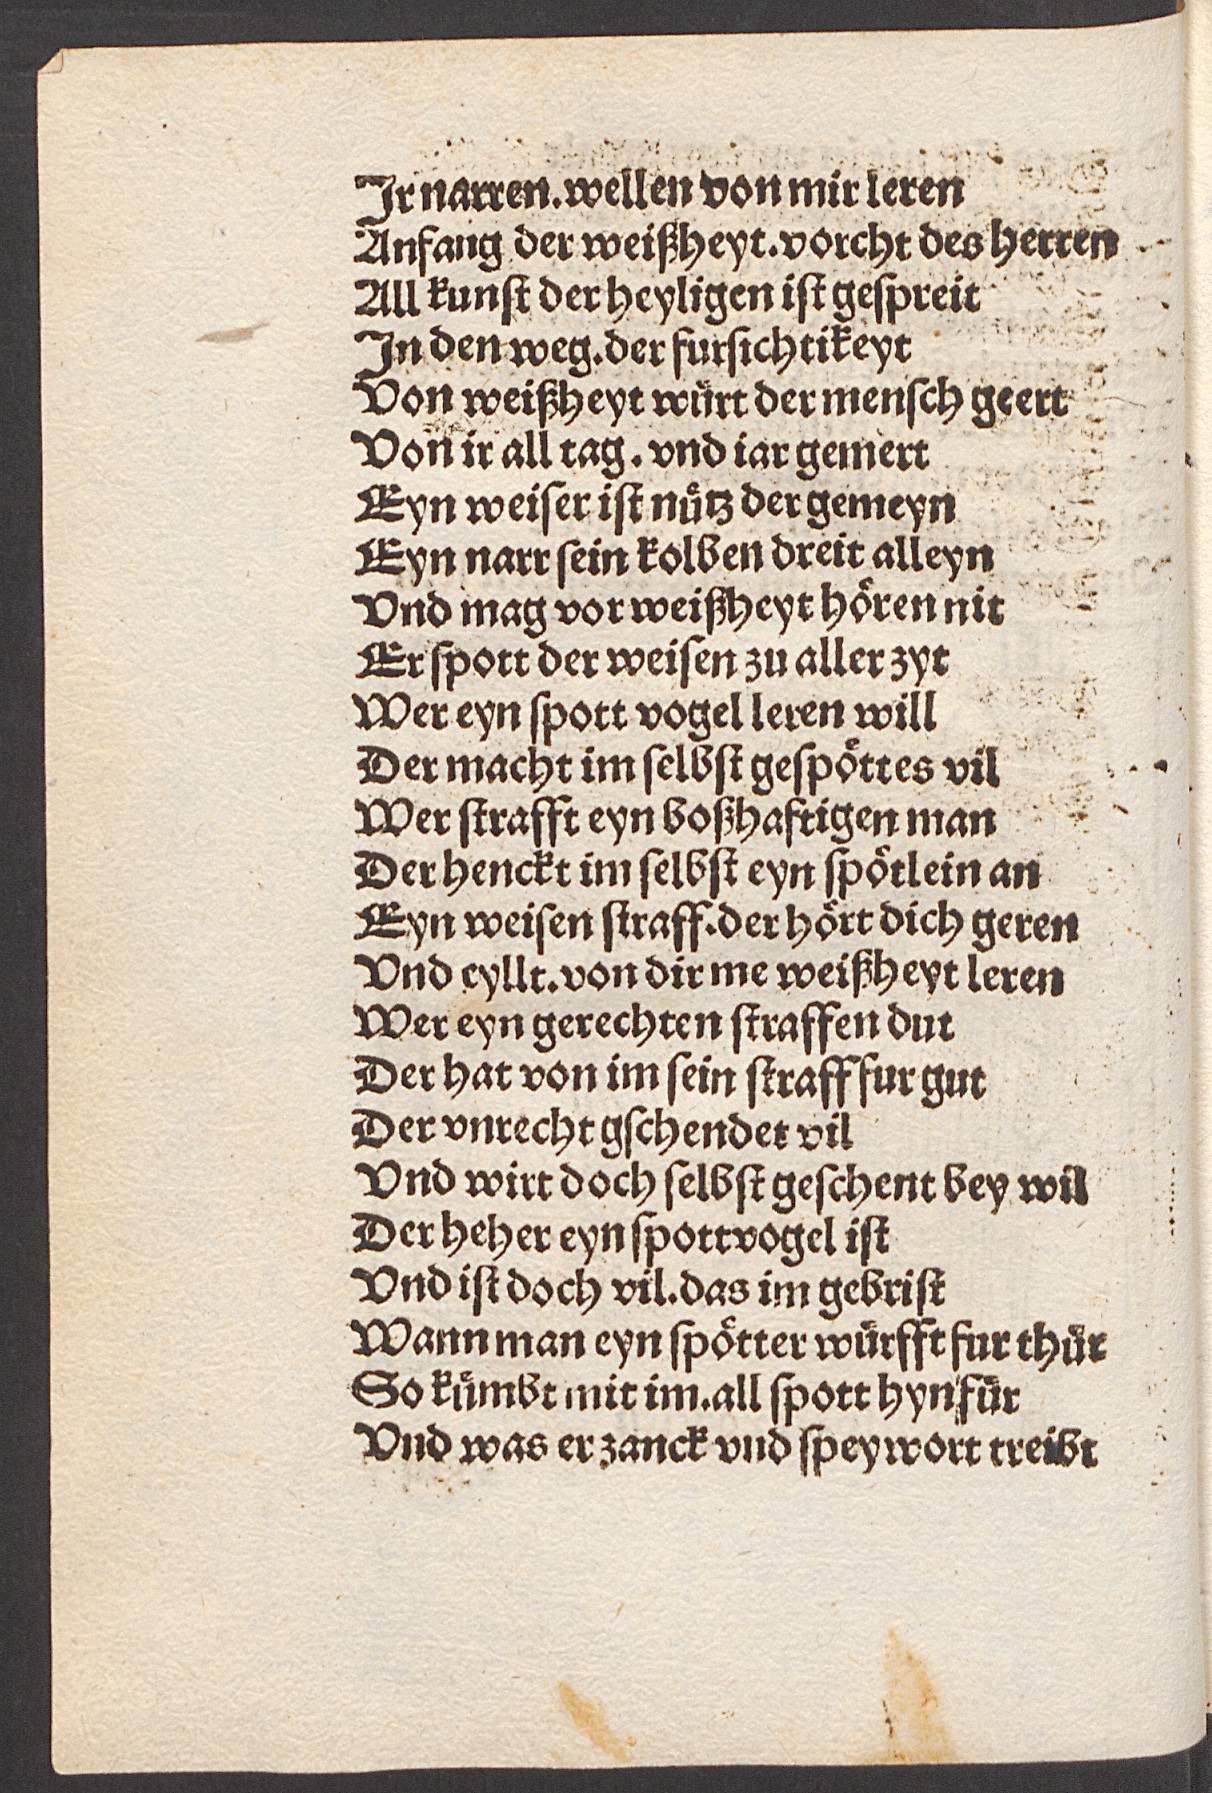 Jr narren. wellen von mir leren
Anfang der weißheyt. vorcht des herren
All kunſt der heyligen iſt geſpreit
In den weg. der furſichtikeyt
Von weißheyt wuͤrt der menſch geert
Von ir all tag. vnd iar gemert
Eyn weiſer iſt nuͤtz der gemeyn
Eyn narr ſein kolben dreit alleyn
Vnd mag vor weißheyt hoͤren nit
Er ſpott der weiſen zu aller zyt
Wer eyn ſpott vogel leren will
Der macht im ſelbſt geſpoͤttes vil
Wer ſtrafft eyn boßhafftigen man
Der henckt im ſelbſt eyn ſpoͤtlein an
Eyn weiſen ſtraff. der hoͤrt dich geren
Vnd eyllt. von dir me weißheyt leren
Wer eyn gerechten ſtraffen dut
Der hat von im ſein ſtraff fur gut
Der vnrecht gſchendet vil
Vnd wirt doch ſelbſt geſchent bey wil
Der heher eyn ſpottvogel iſt
Vnd iſt doch vil. das im gebriſt
Wann man eyn ſpoͤtter wuͤrfft fur thuͤr
So kuͤmbt mit im. all ſpott hynfuͤr
Vnd was er zanck vnd ſpeywort treibt